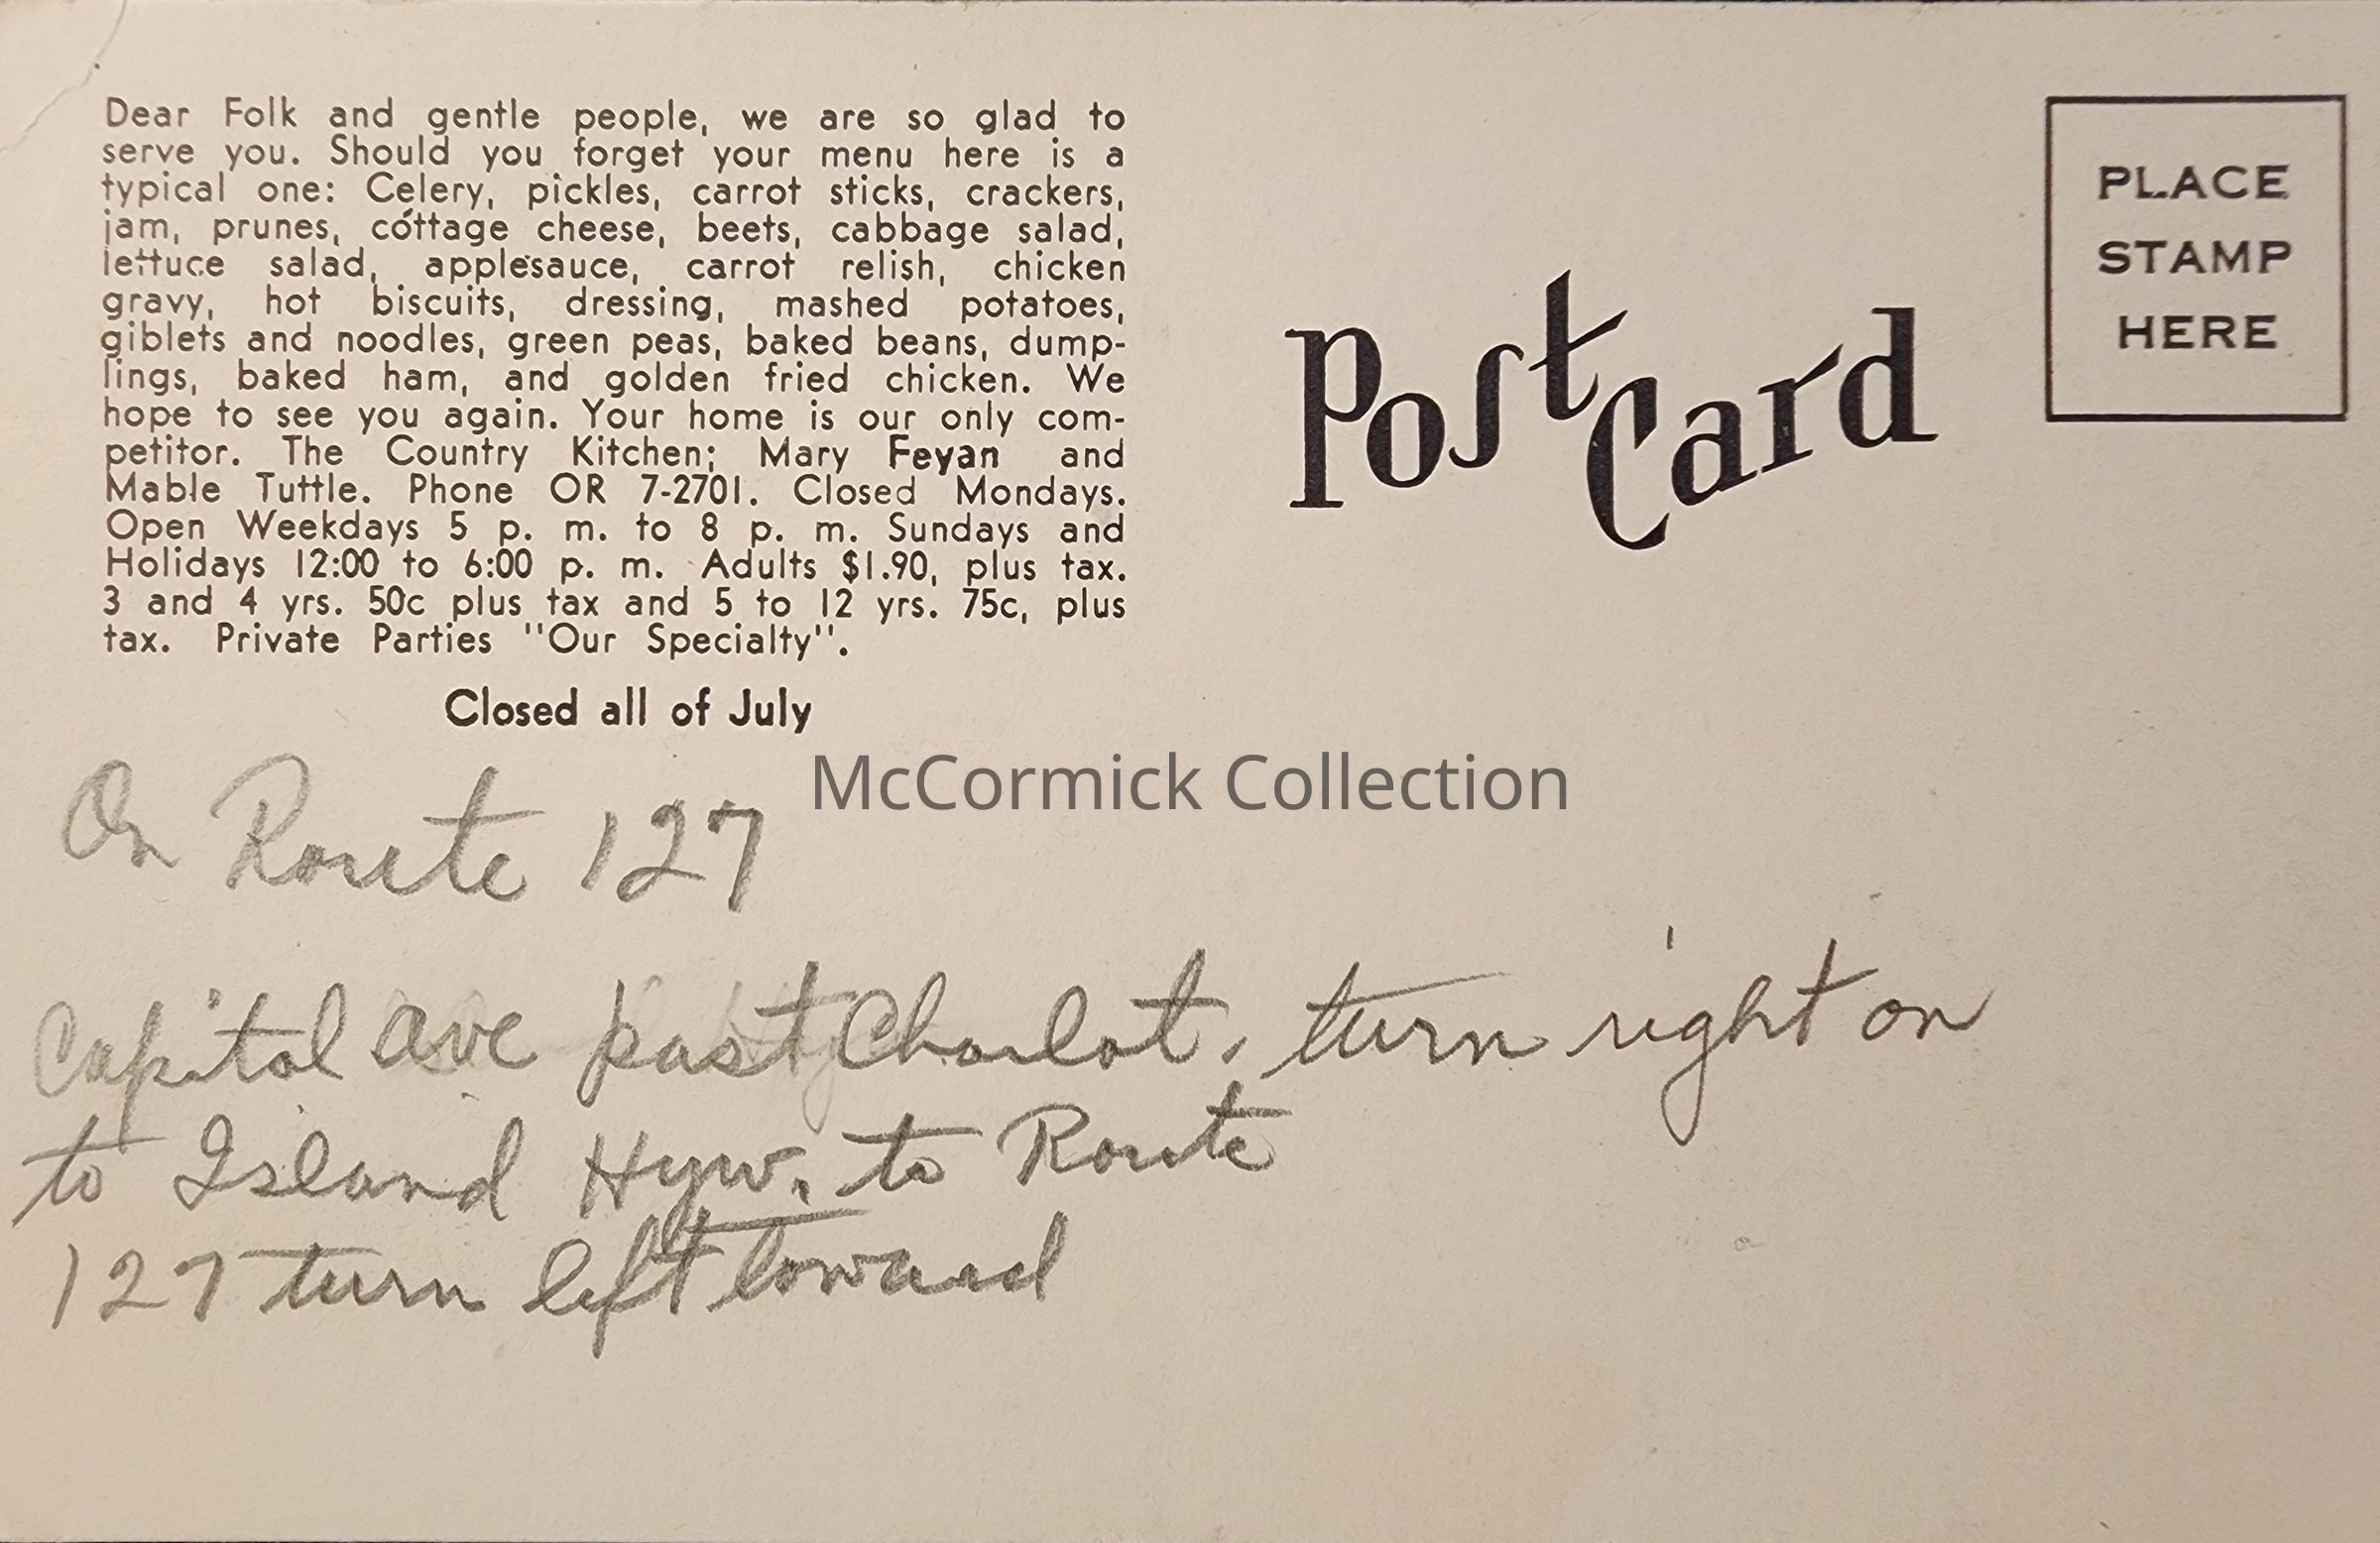 Dear Folk and gentle people, we are so glad to
serve you. Should you forget your menu here is a
typical one: Celery, pickles, carrot sticks, crackers,
jam, prunes, cottage cheese, beets, cabbage salad,
lettuce salad, applesauce, carrot relish, chicken
gravy, hot biscuits, dressing, mashed potatoes,
giblets and noodles, green peas, baked beans, dump-
lings, baked ham, and golden fried chicken. We
hope to see you again. Your home is our only com-
petitor. The Country Kitchen; Mary Feyan and
Mable Tuttle. Phone OR 7-2701. Closed Mondays.
Open Weekdays 5 p. m. to 8 p. m. Sundays and
Holidays 12:00 to 6:00 p. m. Adults $1.90, plus tax.
3 and 4 yrs. 50c plus tax and 5 to 12 yrs. 75c, plus
tax. Private Parties "Our Specialty".
Closed all of July
Post Card
PLACE
STAMP
HERE
McCormick Collection
On Route 127
Capitol ave past Charlot. turn right on
to Island Hyw. to Route
127 turn left toward